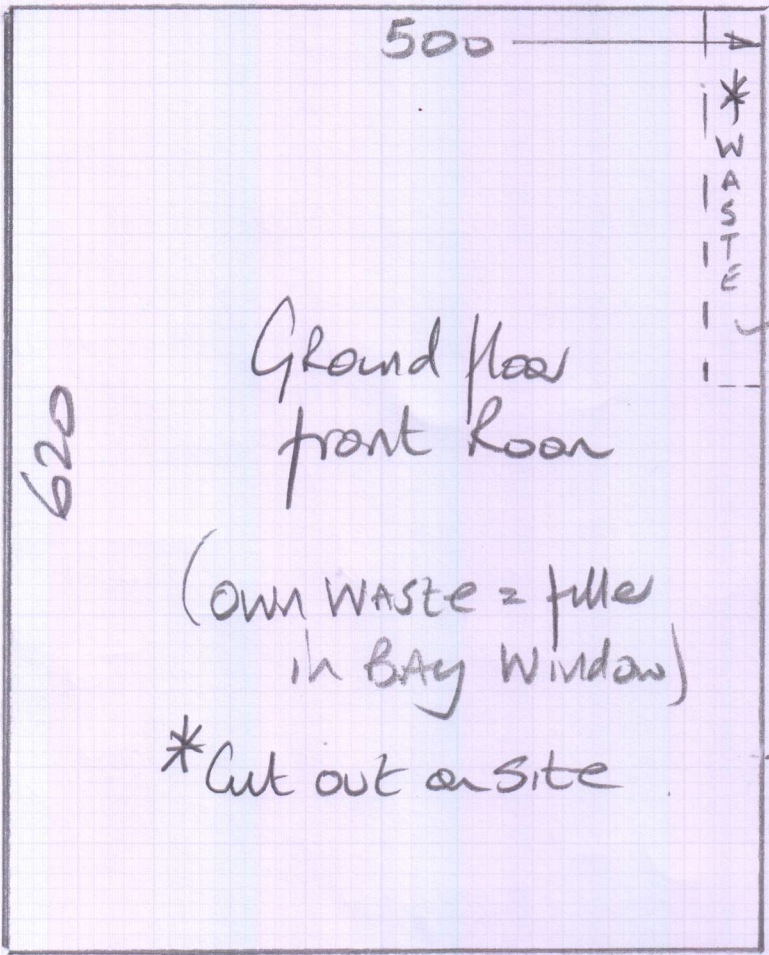 500
* WASTE
620
Ground floor
front Room
(OWN WASTE = filler
in BAY WINDOW)
* Cut out on site